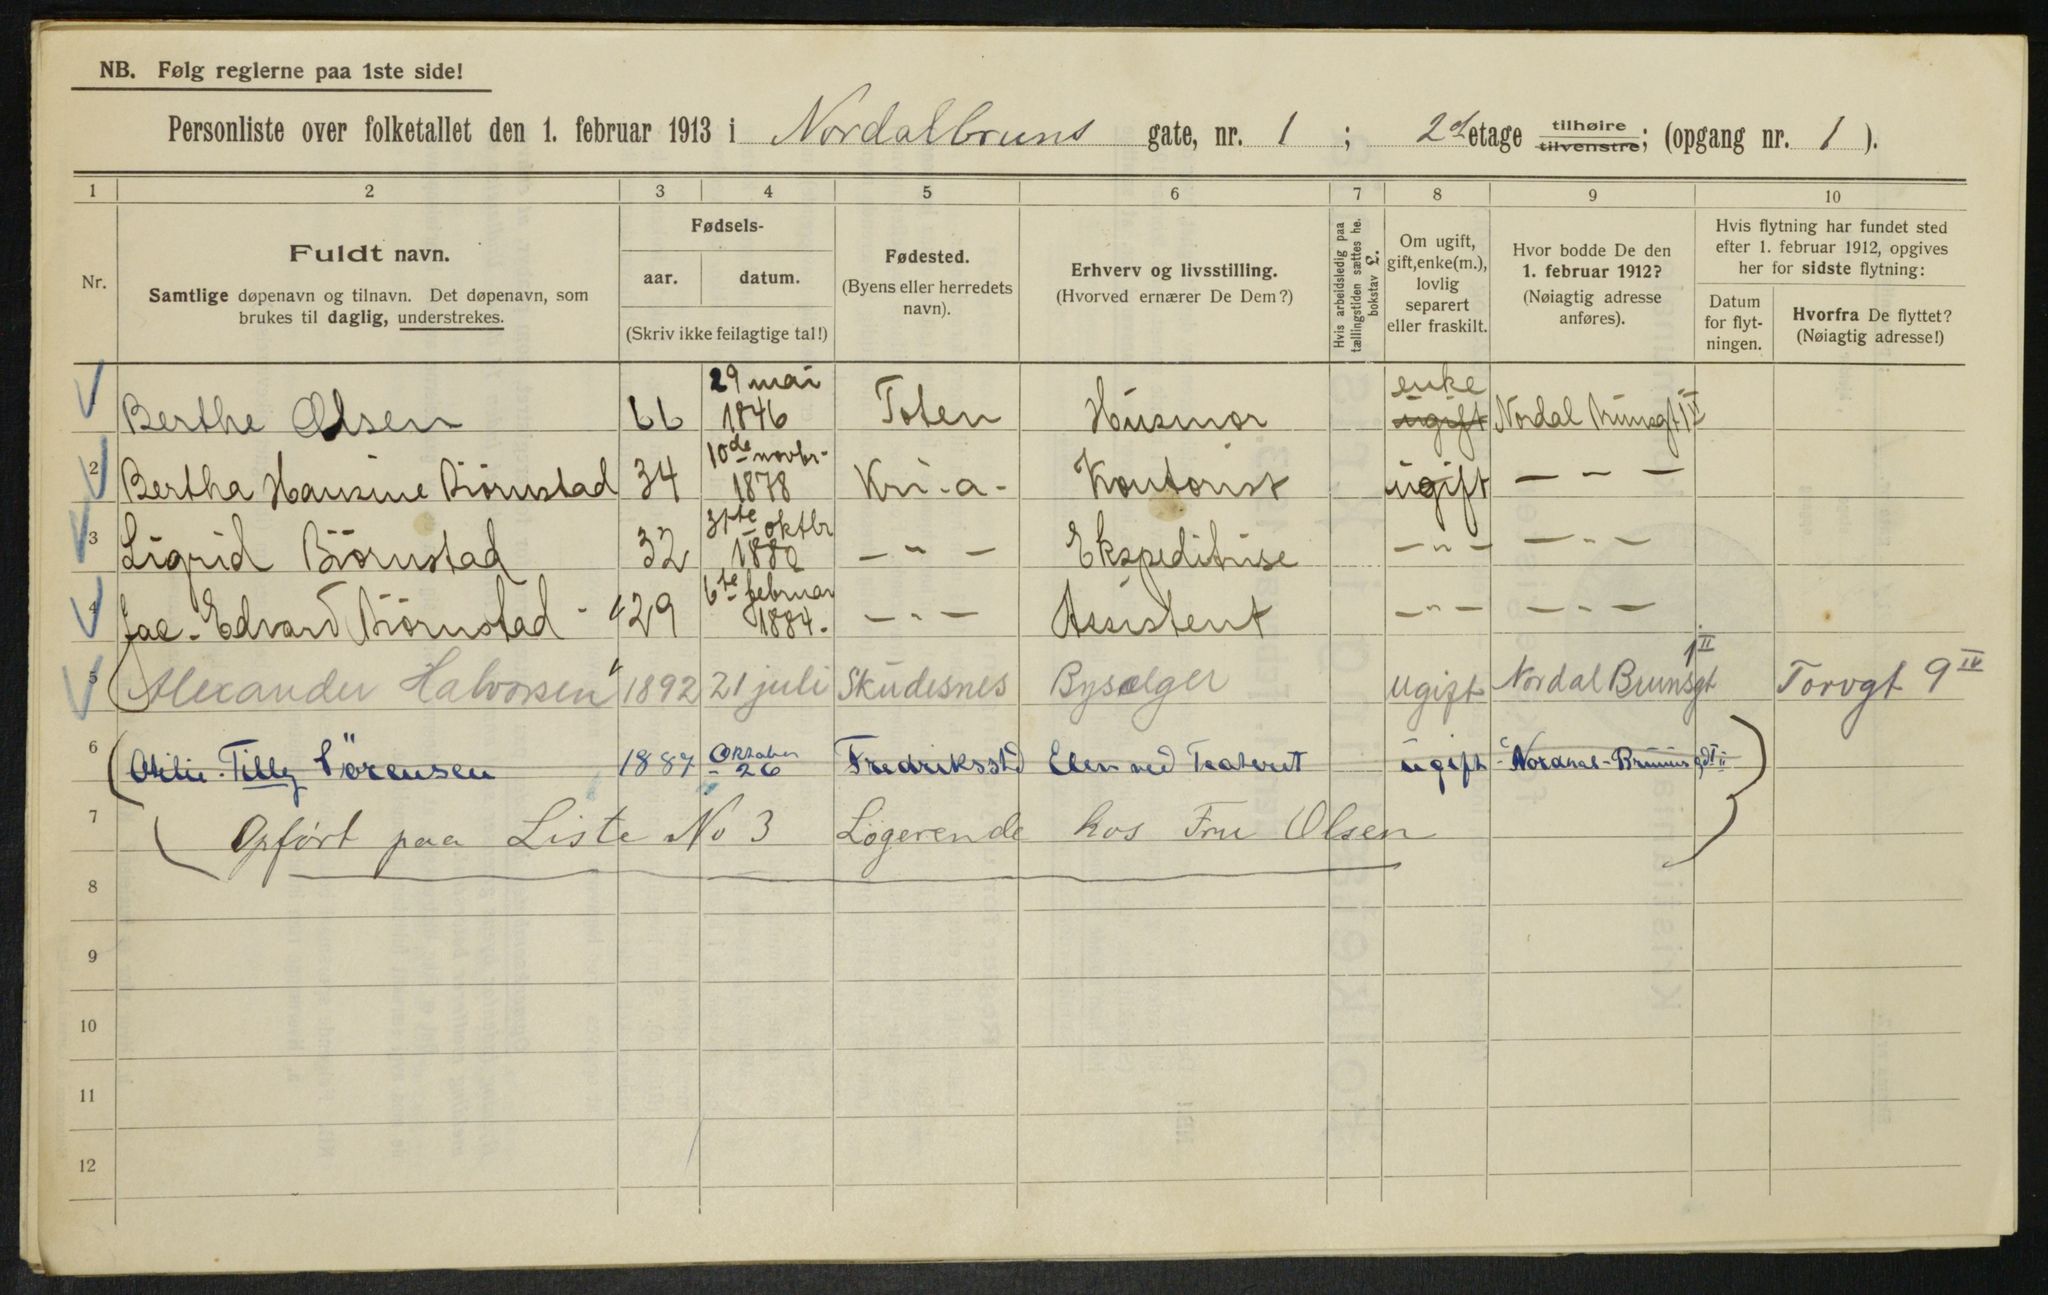 NB. Følg reglerne paa 1ste side!
Personliste over folketallet den 1. februar 1913 i Nordalbruns gate, nr. 1 ; 2det etage tilhøire tilvenstre; (opgang nr. 1 ).
1 2 3 4 5 6 7 8 9 10
Nr.
Fuldt navn.
Samtlige døpenavn og tilnavn. Det døpenavn, som
brukes til daglig, understrekes.
Fødsels-
aar. datum.
(Skriv ikke feilagtige tal!)
Fødested.
(Byens eller herredets
navn).
Erhverv og livsstilling.
(Hvorved ernærer De Dem?)
Hvis arbeidsledig paa
tællingstiden sættes he.
bokstav L.
Om ugift,
gift, enke(m.),
lovlig
separert
eller fraskilt.
Hvor bodde De den
1. februar 1912?
(Nøiagtig adresse
anføres).
Hvis flytning har fundet sted
efter 1. februar 1912, opgives
her for sidste flytning:
Datum
for flyt-
ningen.
Hvorfra De flyttet?
(Nøiagtig adresse!)
29 mai enke
Berthe Olsen 66 1846 Toten Husmor ugift Nordal Brunsgt 1 II
10de novbr-
2 Bertha Hansine Bjørnstad 34 1878 Kri-a- Kontorist ugift — " —
31te oktbr
3 Sigrid Bjørnstad 32 1880 — " — Ekspeditrise — " — — " —
6te februar
4 Jac. Edvard Bjørnstad - 29 1884. — " — Assistent — " — — " —
1 II
5 Alexander Halvorsen 1892 21 juli Skudesnes Bysælger ugift Nordal Brunsgt Torvgt 9 IV
Oktober
6 Otilie-Tilly Sörensen 1887 26 Fredriksstd Elev ved Teateret ugift Nordhal-Bruns gdt 1 II
7 Opført paa Liste No 3 Logerende hos Fru Olsen
8
9
10
11
12